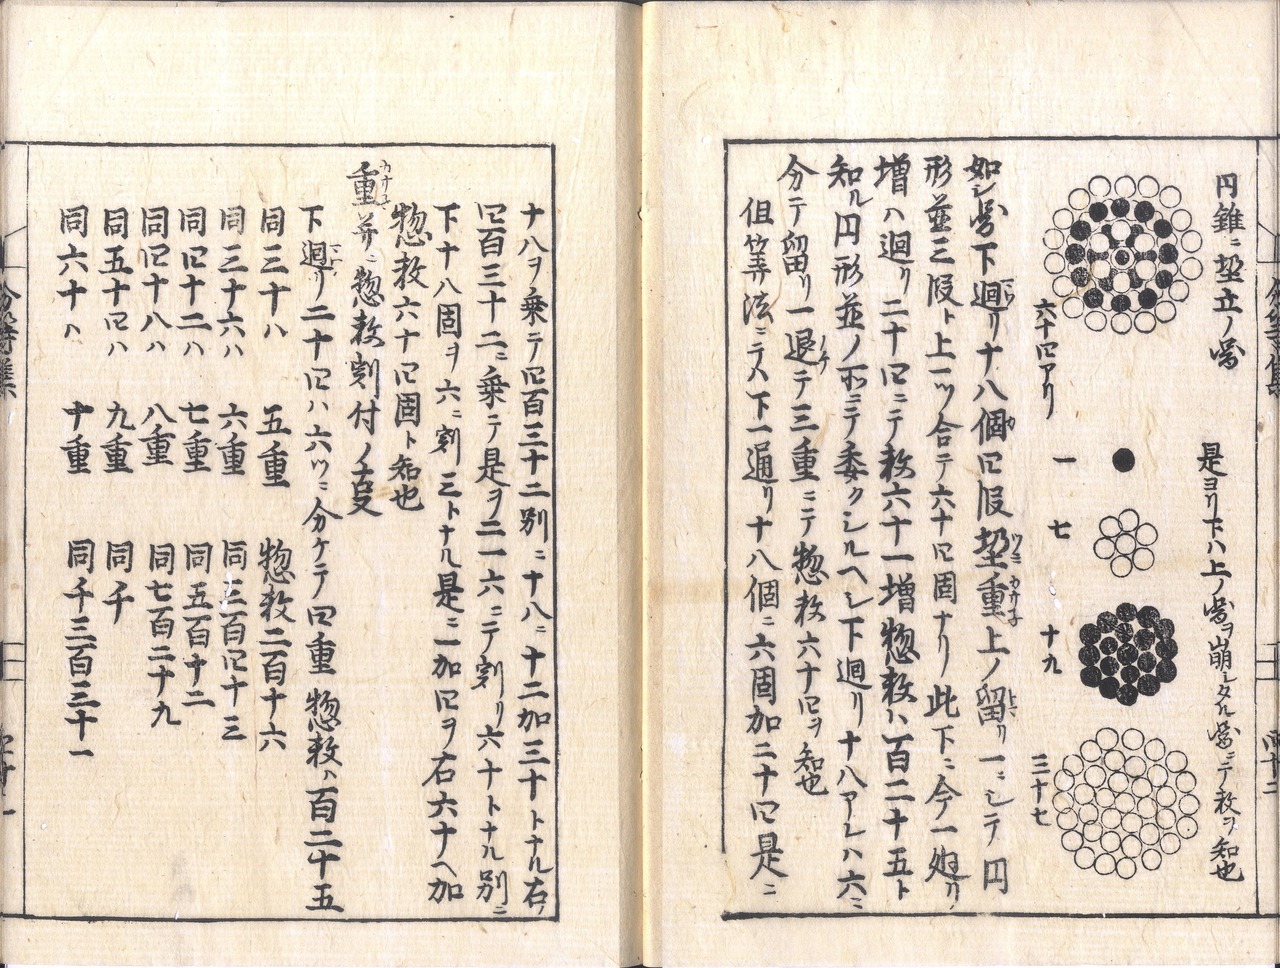 円錐ニ埿立ノ啚
是ヨリ下ハ上ノ啚ヲ崩シタル啚ニテ敉ヲ知也
六十四アリ
一
七
十九
三十七
如シ啚下廻リ十八個四叚埿重上ノ留リ一ニシテ円
形並三叚ト上一ツ合テ六十四固ナリ此下ニ今一廻リ
増ハ廻リ二十四ニテ敉六十一増惣敉ハ百二十五ト
知ル円形並ノ所ニテ委クシルヘシ下廻リ十八アレハ六ニ
分テ留リ一退テ三重ニテ惣敉六十四ヲ知也
但等法ニテハ下一通リ十八個ニ六固加二十四是ニ
十八ヲ乗テ四百三十二別ニ十八ニ十二加三十トナル右ノ
四百三十二ニ乗テ是ヲ二一六ニテ割リ六十トナル別ニ
下十八固ヲ六ニ割三トナル是ニ一加四ヲ右六十ヘ加
惣敉六十四固ト知也
重并ニ惣敉割付ノ叓
下廻リ二十四ハ六ツニ分ケテ四重 惣敉ハ百二十五
同三十ハ 五重 惣敉二百十六
同三十六ハ 六重 同三百四十三
同四十二ハ 七重 同五百十二
同四十八ハ 八重 同七百二十九
同五十四ハ 九重 同千
同六十ハ 十重 同千三百三十一